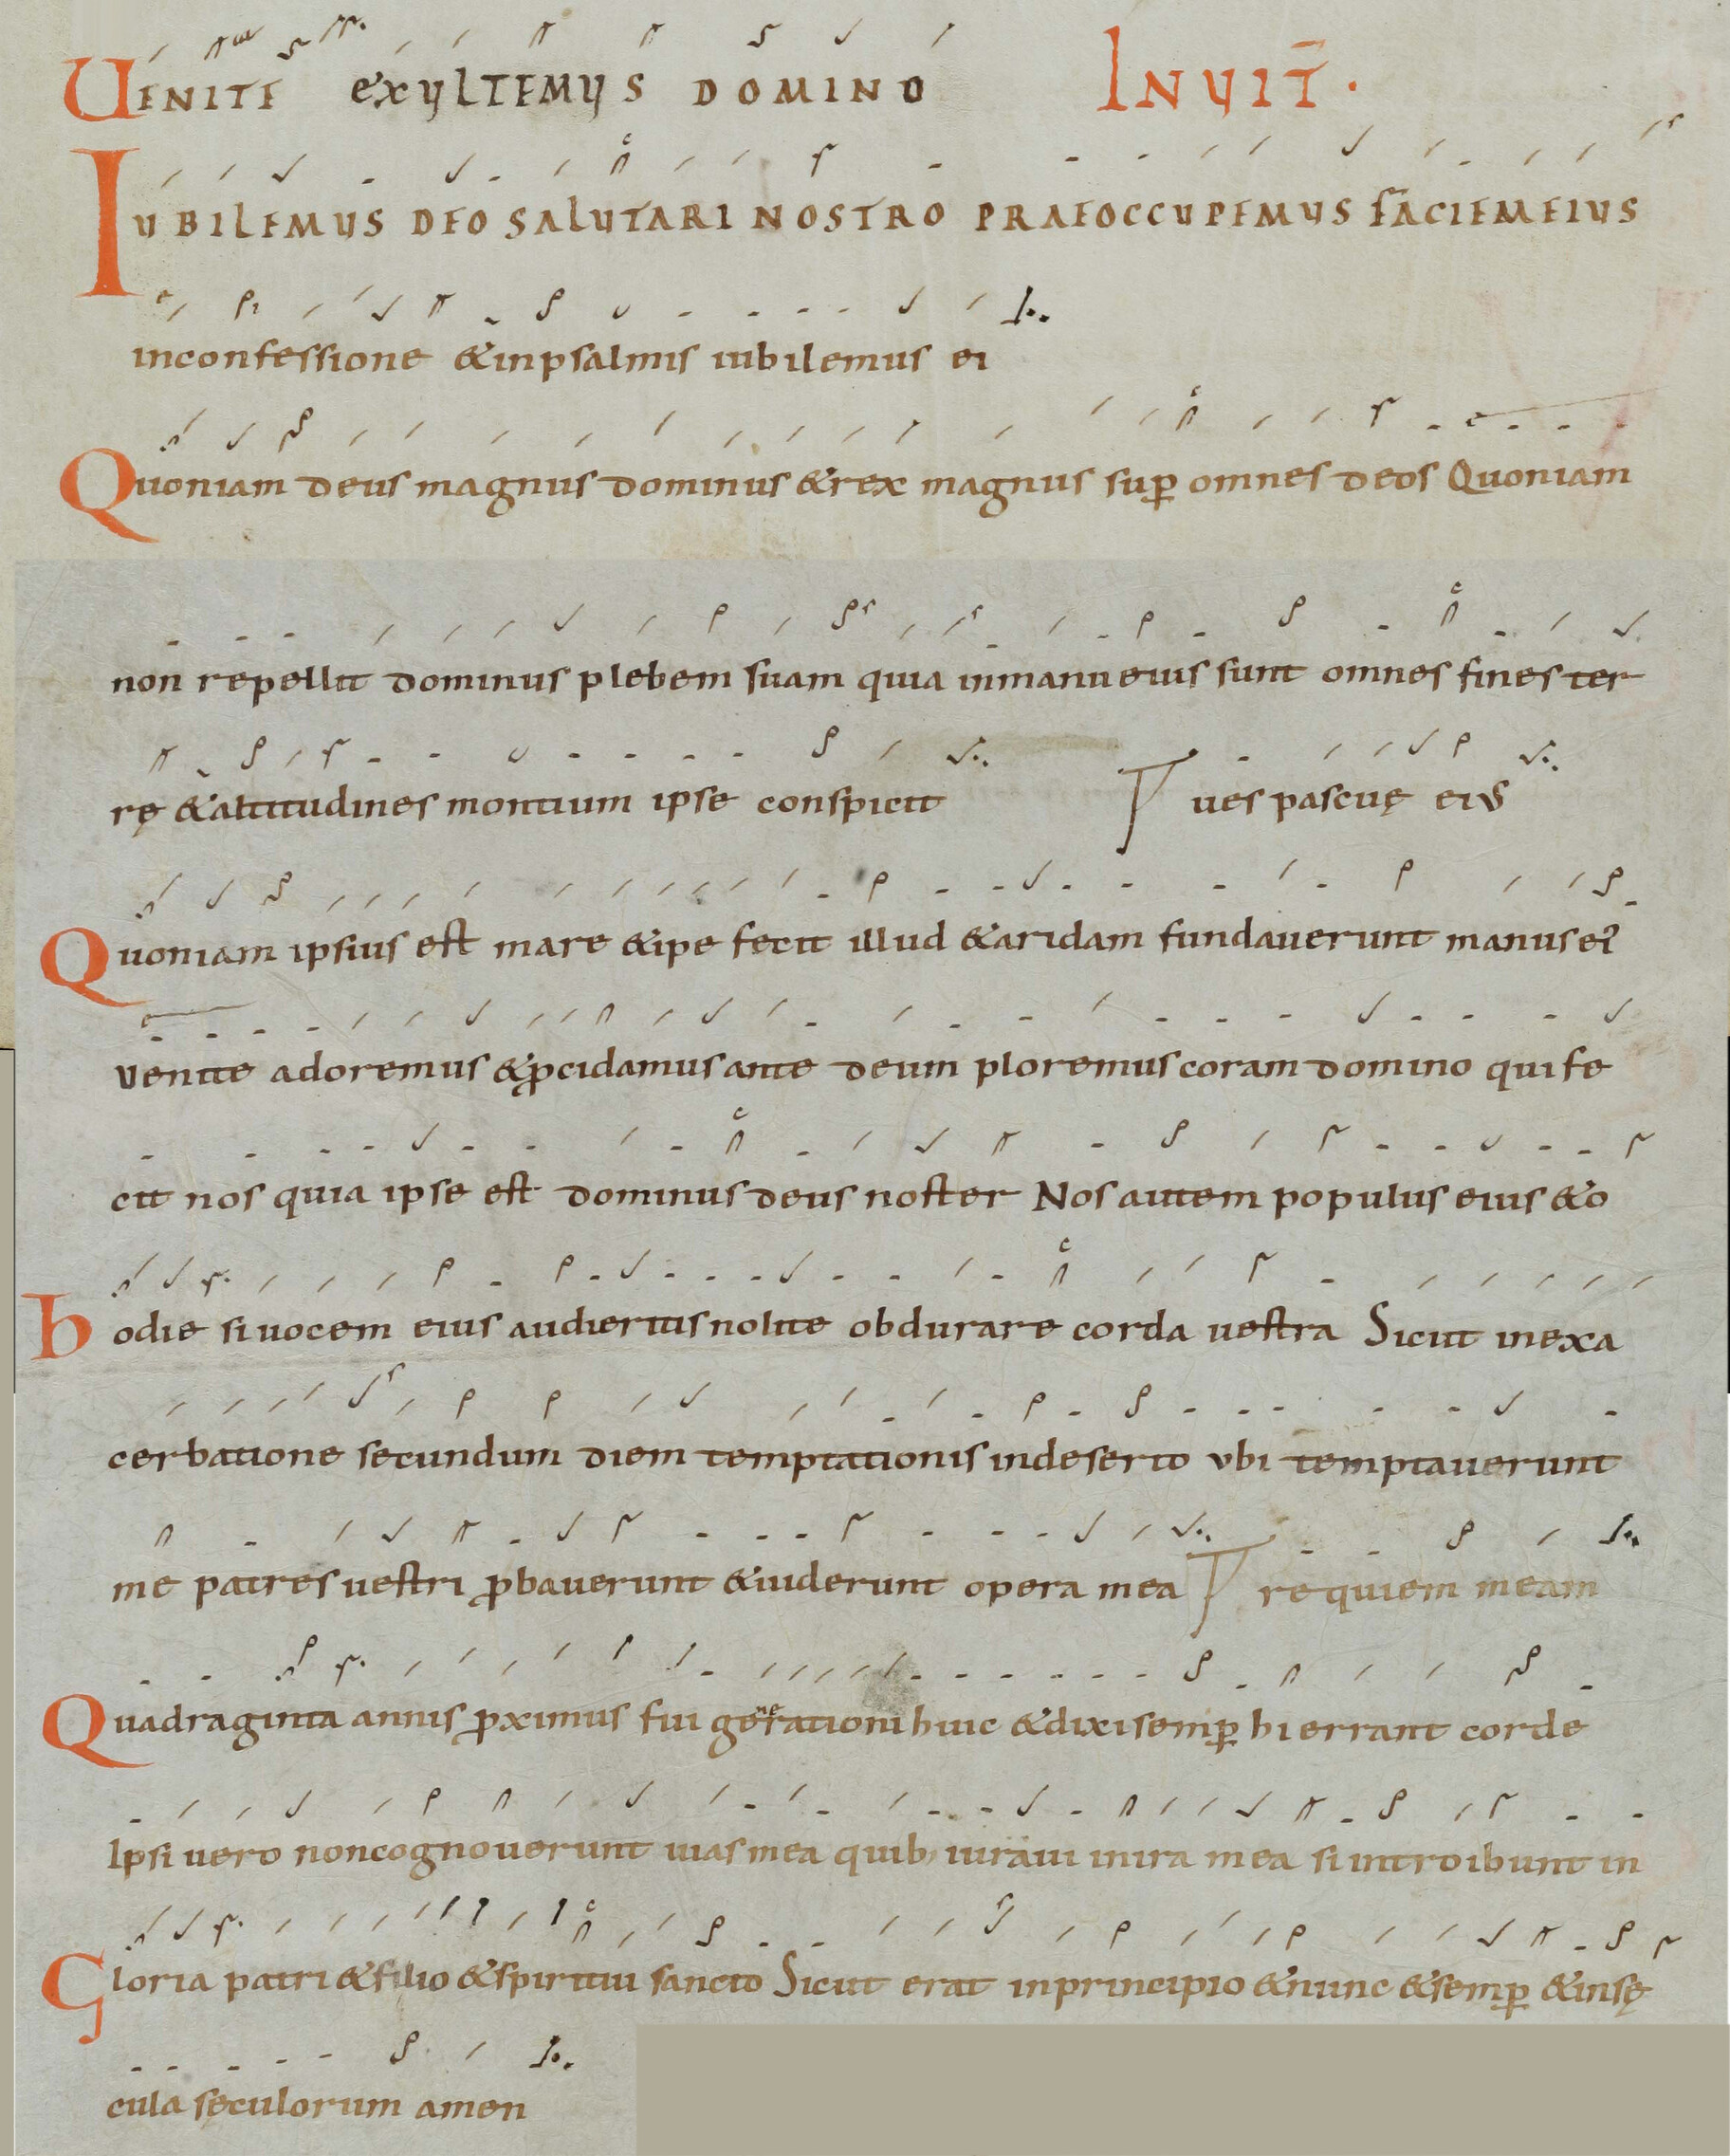 UENITE EXULTEMUS DOMINO INVIT̄.
IUBILEMUS DEO SALUTARI NOSTRO PRAEOCCUPEMUS FACIEM EIUS
in confessione & in psalmis iubilemus ei
Quoniam deus magnus dominus & rex magnus sup̄ omnes deos Quoniam
non repellit dominus plebem suam quia in manu eius sunt omnes fines ter
rę & altitudines montium ipse conspicit ues pascuę eiꝰ
Quoniam ipsius est mare & ipe fecit illud & aridam fundauerunt manus ei᾽
venite adoremus & ꝓcidamus ante deum ploremus coram domino qui fe
cit nos quia ipse est dominus deus noster Nos autem populus eius & o
hodie si uocem eius audieritis nolite obdurare corda uestra Sicut in exa
cerbatione secundum diem temptationis in deserto vbi temptauerunt
me patres uestri ꝓbauerunt & uiderunt opera mea requiem meam
Quadraginta annis ꝓximus fui generationi huic & dixi semp̄ hi errant corde
Ipsi uero non cognouerunt uias mea quib, iuraui in ira mea si introibunt in
Gloria patri & filio & spiritui sancto Sicut erat in principio & nunc & semp̄ & in sę
cula sęculorum amen